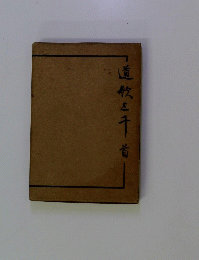 道歌三千首